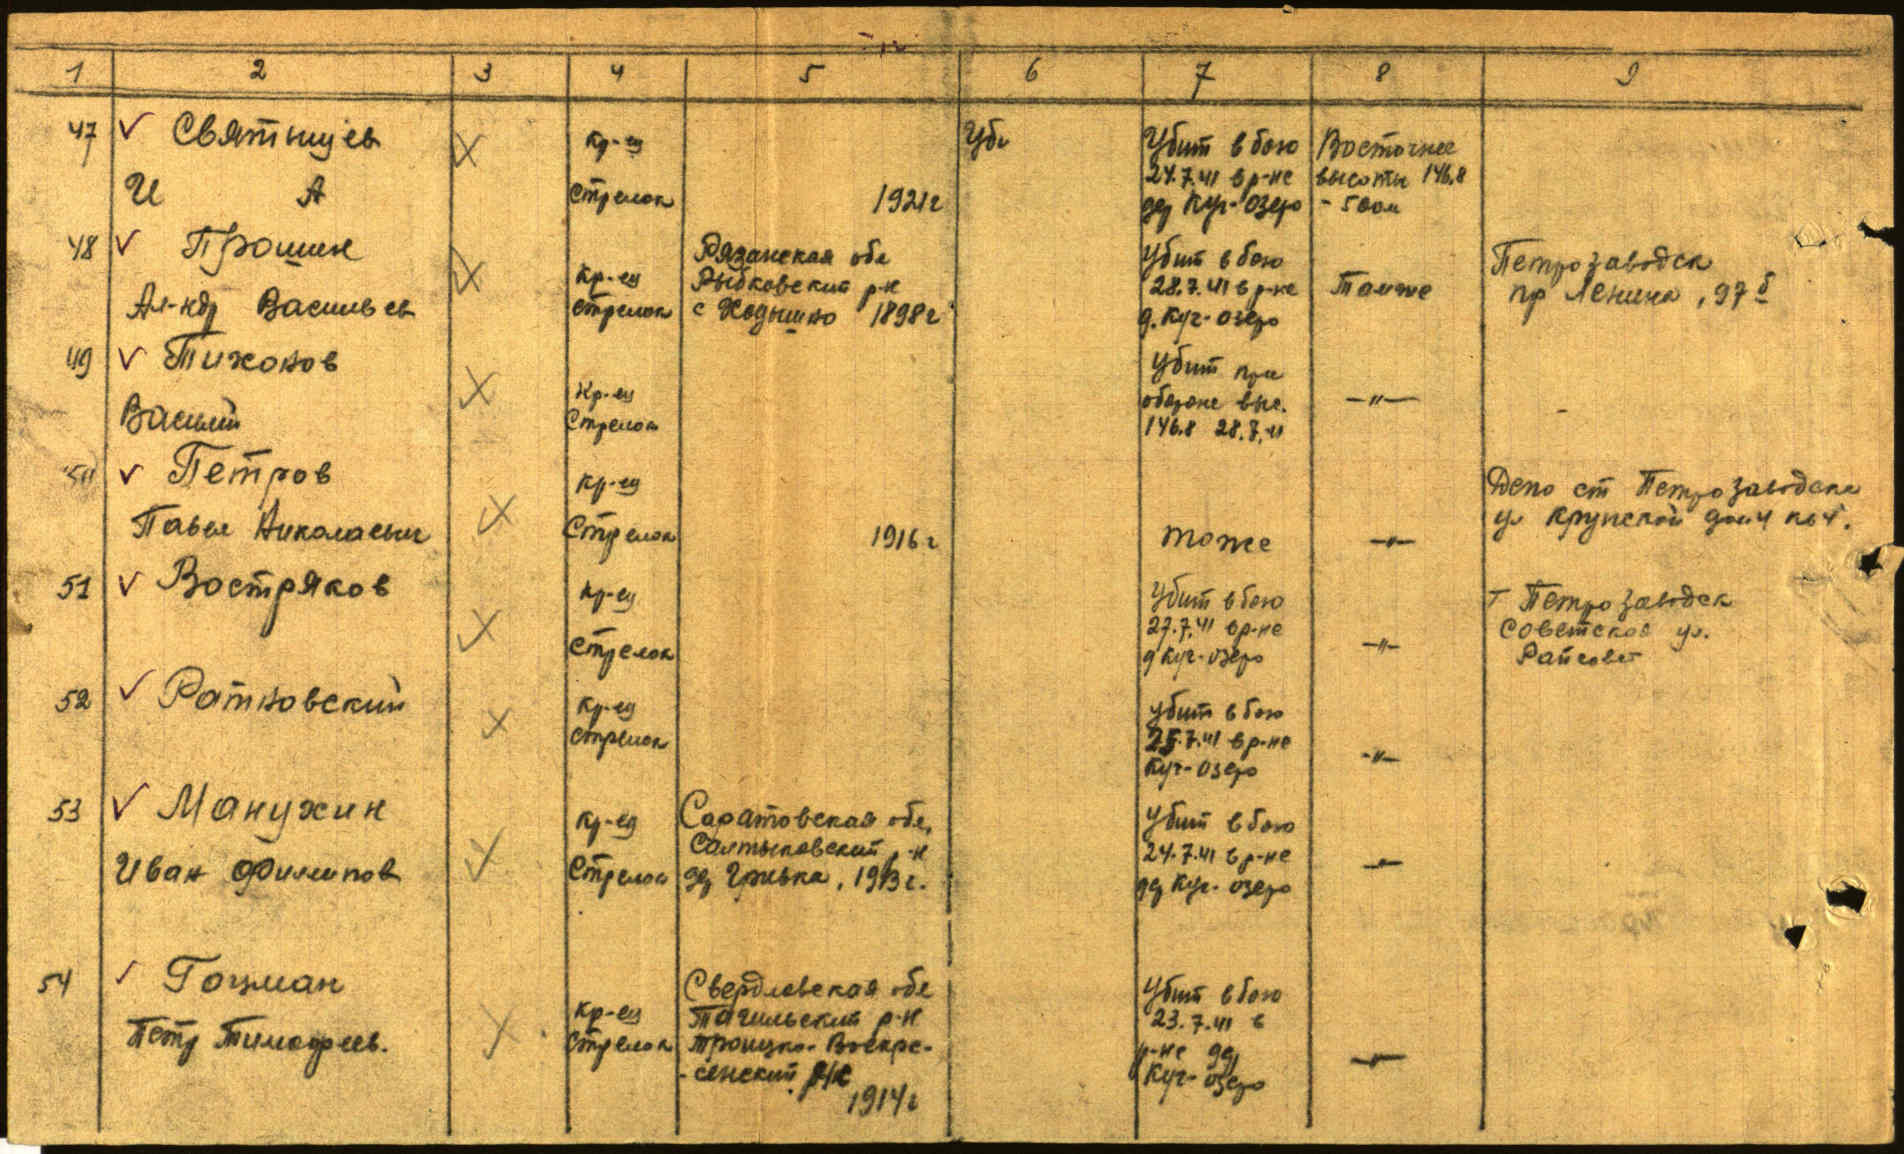 1 2 3 4 5 6 7 8 9
47 Святищев Кр-ец Уби Убит в бою Восточнее
24.7.41 в р-не высоты 146,8
И А Стрелок 1921г дер Куч-Озеро - 500м
48 Прошин Рязанская обл Убит в бою Петрозаводск
Кр-ец Рыбковский р-н 28.7.41 в р-не Тамже пр Ленина, 97 б
Ал-кдр Васильев Стрелок с Ходынино 1898г д. Куч-озеро
49 Тихонов Убит при
Кр-ец обороне выс. -"-
Василий Стрелок 146,8 28.7.41 -
50 Петров Кр-ец Депо ст Петрозаводска
Павел Николаевич Стрелок 1916г тоже -"- ул Крупской дом 4 кв 4.
51 Востряков Кр-ец Убит в бою г Петрозаводск
27.7.41 в р-не Советская ул.
Стрелок д Куч-озеро -"- Райсовет
52 Ратновский Кр-ец Убит в бою
Стрелок 25.7.41 в р-не
Куч-Озеро -"-
53 Манухин Кр-ец Саратовская обл, Убит в бою
Салтыковский р-н 24.7.41 в р-не
Иван Филипов Стрелок дер Гривка, 1913г. дер Куч-озеро -"-
54 Гоцман Свердловская обл Убит в бою
Кр-ец Тагильский р-н 23.7.41 в
Петр Тимофеев. Стрелок Троицко-Воскре- р-не дер -"-
-сенский Куч-озеро
1914г